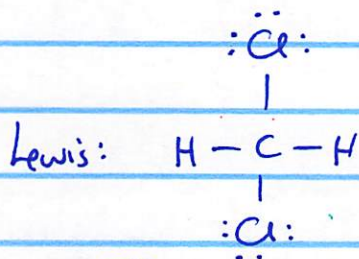 :Cl:
Lewis: H – C – H
:Cl: